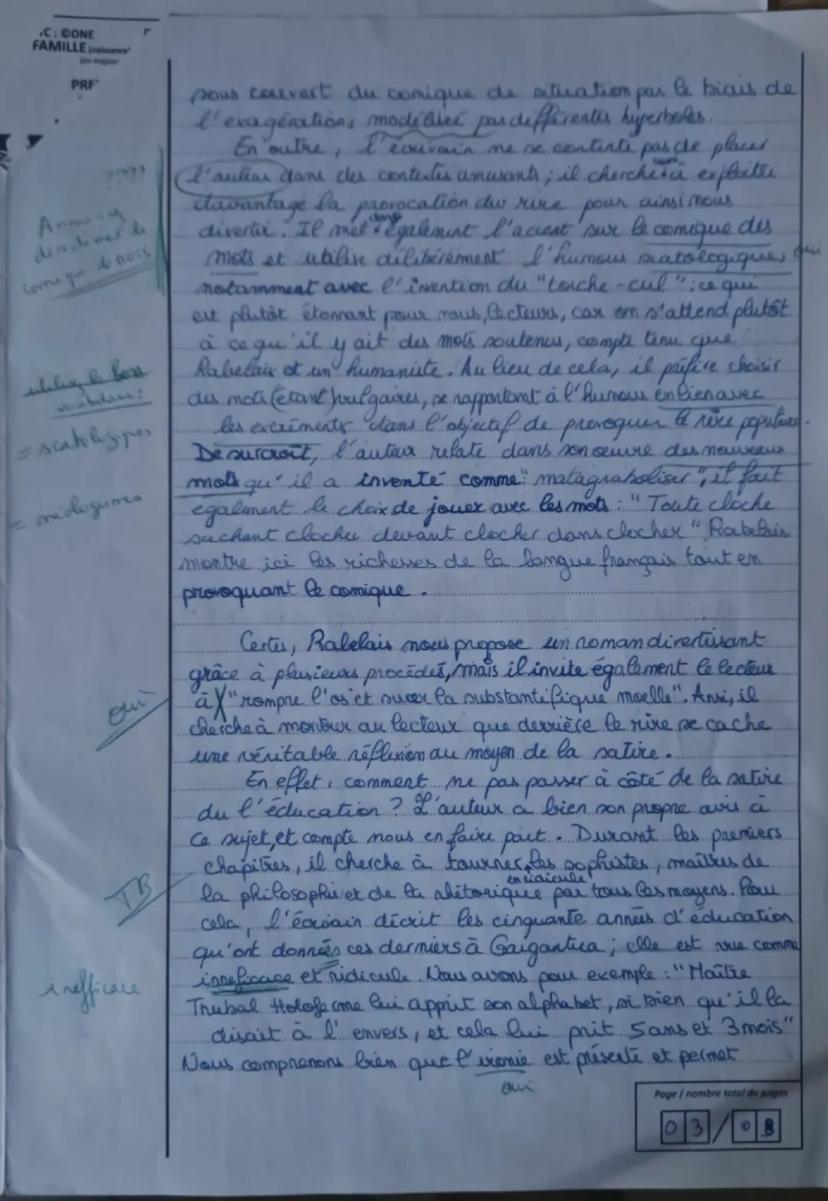 .C : ©DNE
FAMILLE (naissance)
(en majus
PRF
sous couvert du comique de situation par le biais de
l'exagération, modélisée par différentes hyperboles.
En outre, l'écrivain ne se contente pas de placer
????
l'auteur dans des contextes amusants ; il cherche à exploiter
davantage la provocation du rire pour ainsi nous
Annonces
directement le
comique de mots
divertir. Il met donc également l'accent sur le comique des
mots et utilise délibérément l'humour scatologiques, qui
notamment avec l'invention du "torche-cul" ; ce qui
est plutôt étonnant pour nous, lecteurs, car on s'attend plutôt
à ce qu'il y ait des mots soutenus, compte tenu que
Rabelais est un humaniste. Au lieu de cela, il préfère choisir
utilisez le bon
vocabulaire :
des mots (étant) vulgaires, se rapportant à l'humour en lien avec
= scatologiques
les excréments dans l'objectif de provoquer le rire populaire.
De surcroît, l'auteur relate dans son oeuvre des nouveaux
mots qu'il a inventé comme "matagraboliser", il fait
= néologismes
également le choix de jouer avec les mots : "Toute cloche
sachant clocher devant clocher dans clocher" Rabelais
montre ici les richesses de la langue français tout en
provoquant le comique.
Certes, Rabelais nous propose un roman divertissant
grâce à plusieurs procédés, mais il invite également le lecteur
oui
à "rompre l'os et sucer la substantifique moelle". Ansi, il
cherche à montrer au lecteur que derrière le rire se cache
une véritable réflexion au moyen de la satire.
En effet, comment ne pas passer à côté de la satire
du l'éducation ? L'auteur a bien son propre avis à
ce sujet, et compte nous en faire part. Durant les premiers
chapitres, il cherche à tourner en ridicule les sophistes, maîtres de
TB
la philosophie et de la rhétorique par tous les moyens. Pour
cela, l'écrivain décrit les cinquante années d'éducation
qu'ont données ces derniers à Gargantua ; elle est vue comme
inefficace
innefficace et ridicule. Nous avons pour exemple : "Maître
Thubal Holoferme lui apprit son alphabet, si bien qu'il la
disait à l'envers, et cela lui prit 5 ans et 3 mois"
Nous comprenons bien que l'ironie est présente et permet
oui
Page / nombre total de pages
03/08